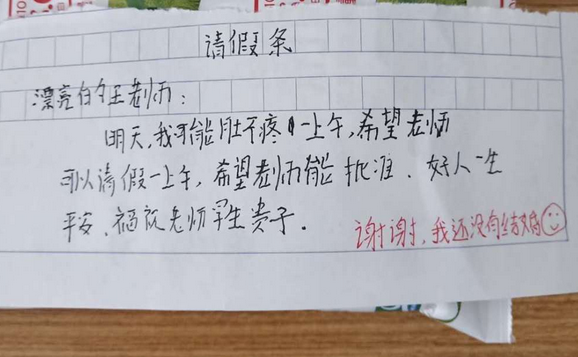 请假条
漂亮的王老师：
明天,我可能肚子疼一上午,希望老师
可以请假一上午,希望老师能批准.好人一生
平安.祝福老师早生贵子.
谢谢,我还没有结婚